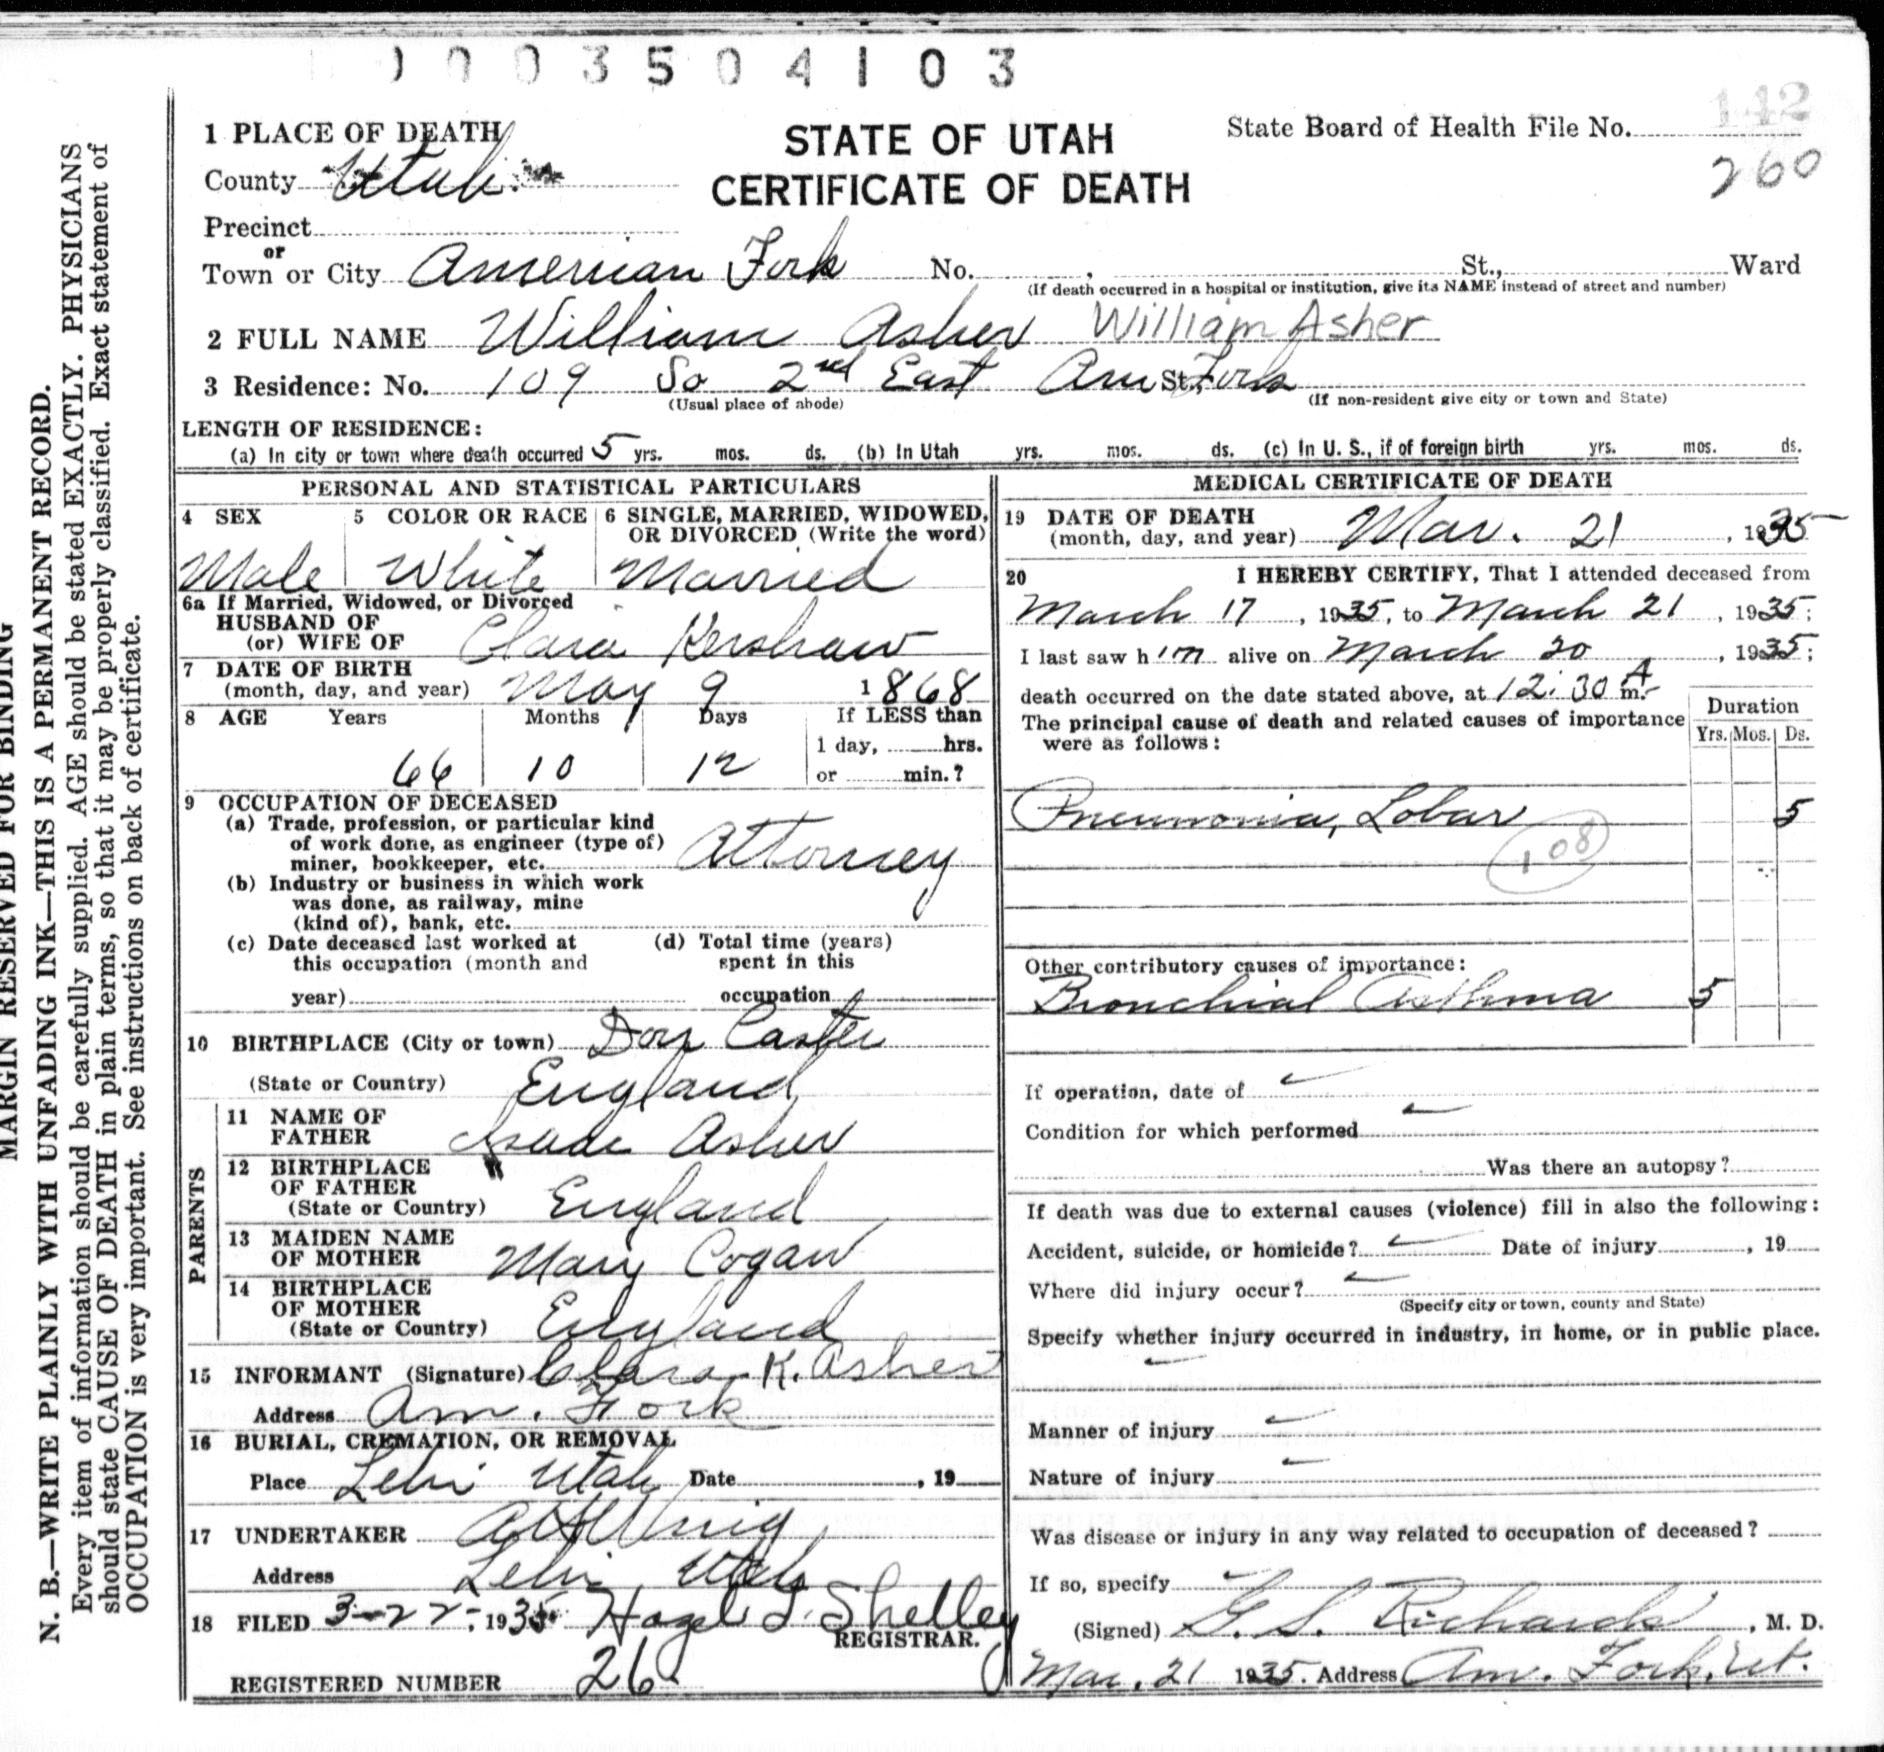 0003504103
142
1 PLACE OF DEATH
STATE OF UTAH
State Board of Health File No.
County Utah
CERTIFICATE OF DEATH
260
Precinct
or
Town or City American Fork No. , St., Ward
(If death occurred in a hospital or institution, give its NAME instead of street and number)
2 FULL NAME William Asher William Asher
3 Residence: No. 109 So 2nd East Am St. Fork
(Usual place of abode) (If non-resident give city or town and State)
LENGTH OF RESIDENCE:
(a) In city or town where death occurred 5 yrs. mos. ds. (b) In Utah yrs. mos. ds. (c) In U. S., if of foreign birth yrs. mos. ds.
PERSONAL AND STATISTICAL PARTICULARS
4 SEX 5 COLOR OR RACE 6 SINGLE, MARRIED, WIDOWED,
OR DIVORCED (Write the word)
Male White Married
6a If Married, Widowed, or Divorced
HUSBAND OF
(or) WIFE OF Clara Kershaw
7 DATE OF BIRTH
(month, day, and year) May 9 1868
8 AGE Years Months Days If LESS than
1 day, hrs.
66 10 12 or min.?
9 OCCUPATION OF DECEASED
(a) Trade, profession, or particular kind
of work done, as engineer (type of)
miner, bookkeeper, etc. Attorney
(b) Industry or business in which work
was done, as railway, mine
(kind of), bank, etc.
(c) Date deceased last worked at (d) Total time (years)
this occupation (month and spent in this
year) occupation
10 BIRTHPLACE (City or town) Don Caster
(State or Country) England
PARENTS
11 NAME OF
FATHER Asher
12 BIRTHPLACE
OF FATHER
(State or Country) England
13 MAIDEN NAME
OF MOTHER Mary Cogan
14 BIRTHPLACE
OF MOTHER
(State or Country) England
15 INFORMANT (Signature) Clara K. Asher
Address Am. Fork
16 BURIAL, CREMATION, OR REMOVAL
Place Lehi Utah Date , 19
17 UNDERTAKER
Address Lehi, Utah
18 FILED 3-22-, 1935 Hazel Shelley
REGISTRAR.
REGISTERED NUMBER 26
MEDICAL CERTIFICATE OF DEATH
19 DATE OF DEATH
(month, day, and year) Mar. 21, 1935
20 I HEREBY CERTIFY, That I attended deceased from
March 17, 1935, to March 21, 1935;
I last saw him alive on March 20, 1935;
death occurred on the date stated above, at 12:30 A m.
The principal cause of death and related causes of importance
were as follows:
Duration
Yrs. Mos. Ds.
Pneumonia, Lobar 5
108
Other contributory causes of importance:
Bronchial Asthma 5
If operation, date of
Condition for which performed
Was there an autopsy?
If death was due to external causes (violence) fill in also the following:
Accident, suicide, or homicide? Date of injury , 19
Where did injury occur?
(Specify city or town, county and State)
Specify whether injury occurred in industry, in home, or in public place.
Manner of injury
Nature of injury
Was disease or injury in any way related to occupation of deceased?
If so, specify
(Signed) G. S. Richards, M. D.
Mar. 21 1935. Address Am. Fork, Ut.
MARGIN RESERVED FOR BINDING
N. B.—WRITE PLAINLY WITH UNFADING INK—THIS IS A PERMANENT RECORD.
Every item of information should be carefully supplied. AGE should be stated EXACTLY. PHYSICIANS
should state CAUSE OF DEATH in plain terms, so that it may be properly classified. Exact statement of
OCCUPATION is very important. See instructions on back of certificate.